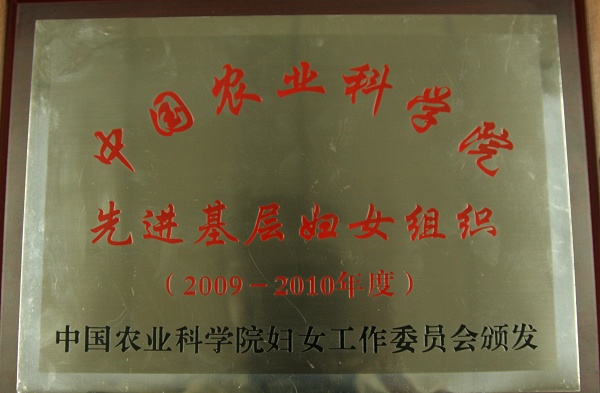 中国农业科学院
先进基层妇女组织
（2009－2010年度）
中国农业科学院妇女工作委员会颁发